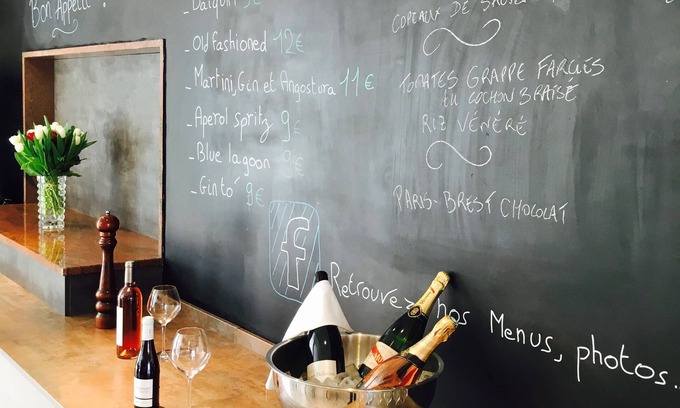 Bon Appétit!
_Daiquiri 9€
_Old fashioned 12€
_Martini, Gin et Angostura 11€
_Aperol spritz 9€
_Blue lagoon 9€
_Ginto' 9€
f
COPEAUX DE
TOMATES GRAPPE FARCIES
EN COCHON BRAISÉ
RIZ VÉNÉRÉ
PARIS-BREST CHOCOLAT
Retrouvez nos Menus, photos...